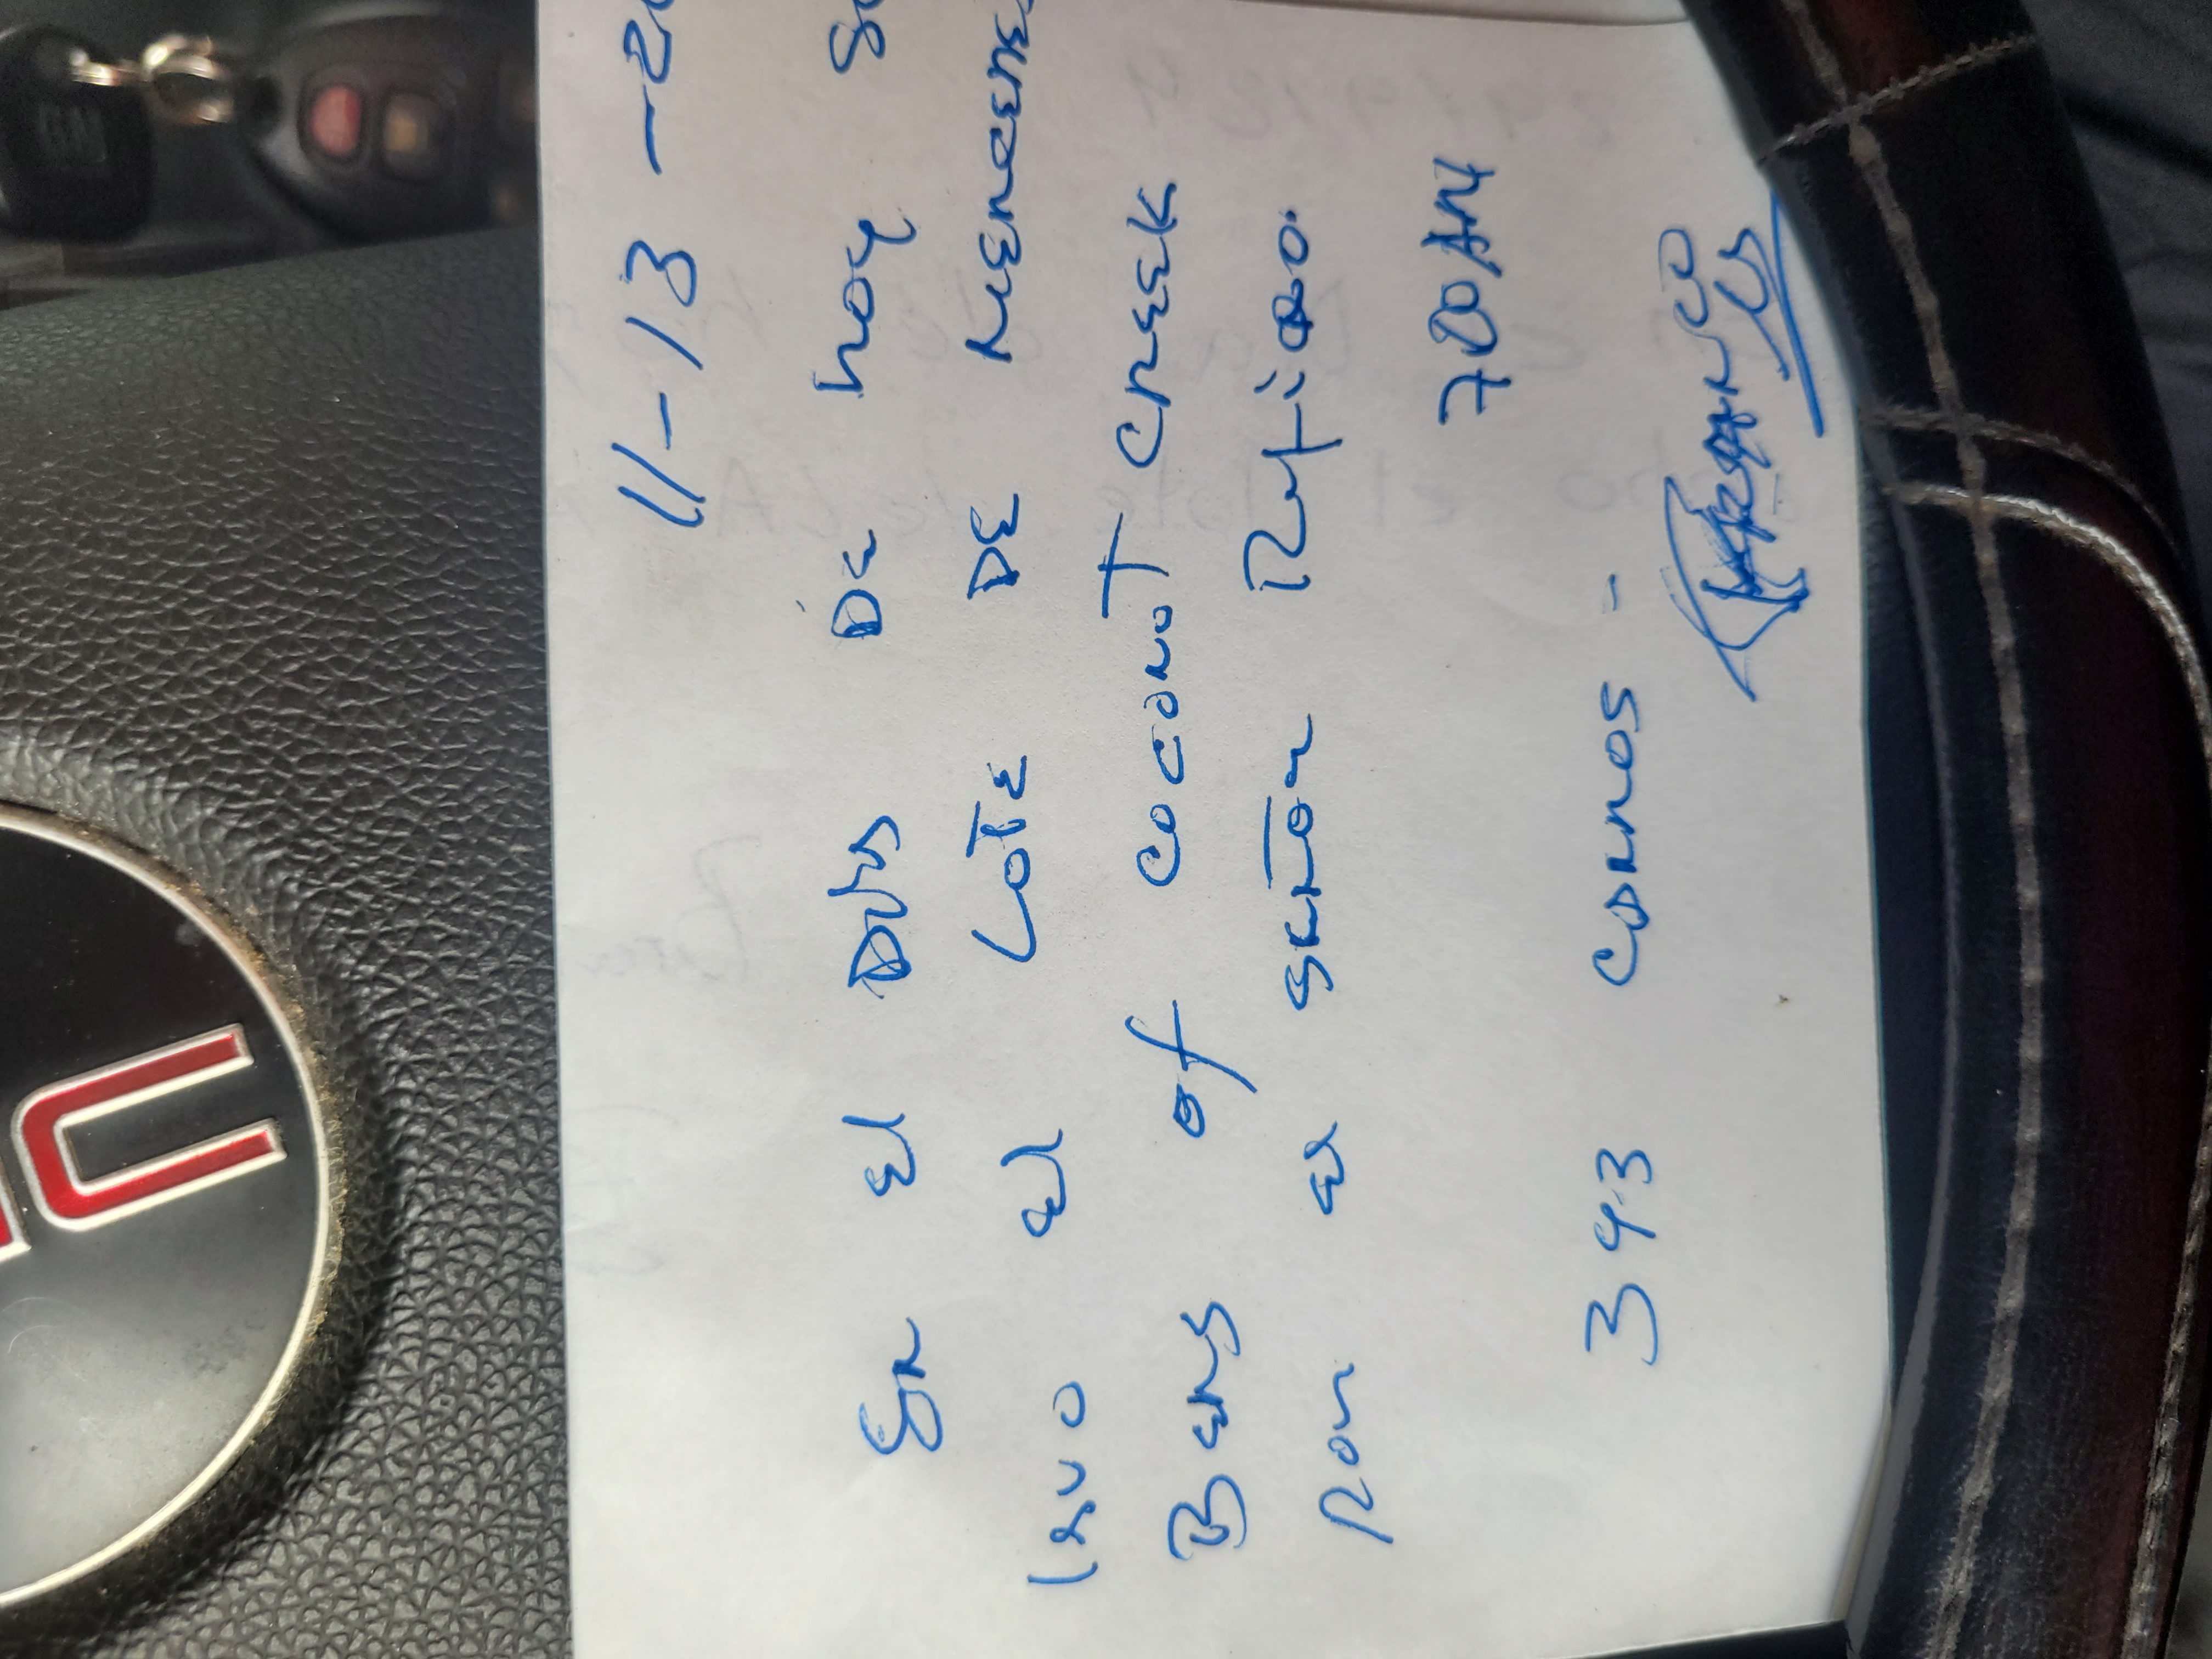 11-13-20
En el Dia De hoy Se
lavo el Lote DE REFERENE
Bens of COCONOT CREEK
Por el señor Rufino.
7:00 AM
343 CARROS -